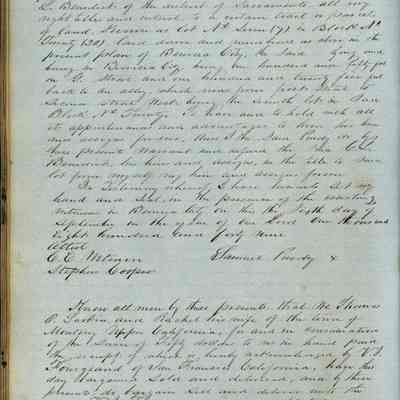 S. Benedict of the district of Sacramento all my
right title and interest, to a certain tract or parcel
of land, known as Lot No Seven (7) in Block No
Twenty (20) laid down and numbered as above in the
present plan of Benicia City, the said lying and
being in Benicia City being one hundred and fifty feet
on St. Street and one hundred and twenty five feet
back to an alley, which runs from first Street to
Second Street, Said being the seventh lot in said
Block No Twenty. To have and to hold with all
its appurtenances and advantages to them for him
and assigns forever, Also I the said Purdy do by
these presents Warrant and defend the said C. S.
Benedict his heirs and assigns, in the title to said
lot from myself my heirs and assigns forever
In Testimony whereof I have hereunto set my
hand and seal, in the presence of the attesting
witness in Benicia City on this the tenth day of
September in the year of our Lord One thousand
eight hundred and forty nine
Attest
C. E. Wetmore Samuel Purdy
Stephen Cooper
Know all men by these presents that We Thomas
P. and Rachel his wife of the town of
Monterey Upper California, for and in consideration
of the sum of Fifty dollars to us in hand paid
the receipt of which is hereby acknowledged by V. J.
Fourgeaud of San Francisco California, have this
day bargained Sold and delivered, and by these
presents do bargain Sell and deliver unto the